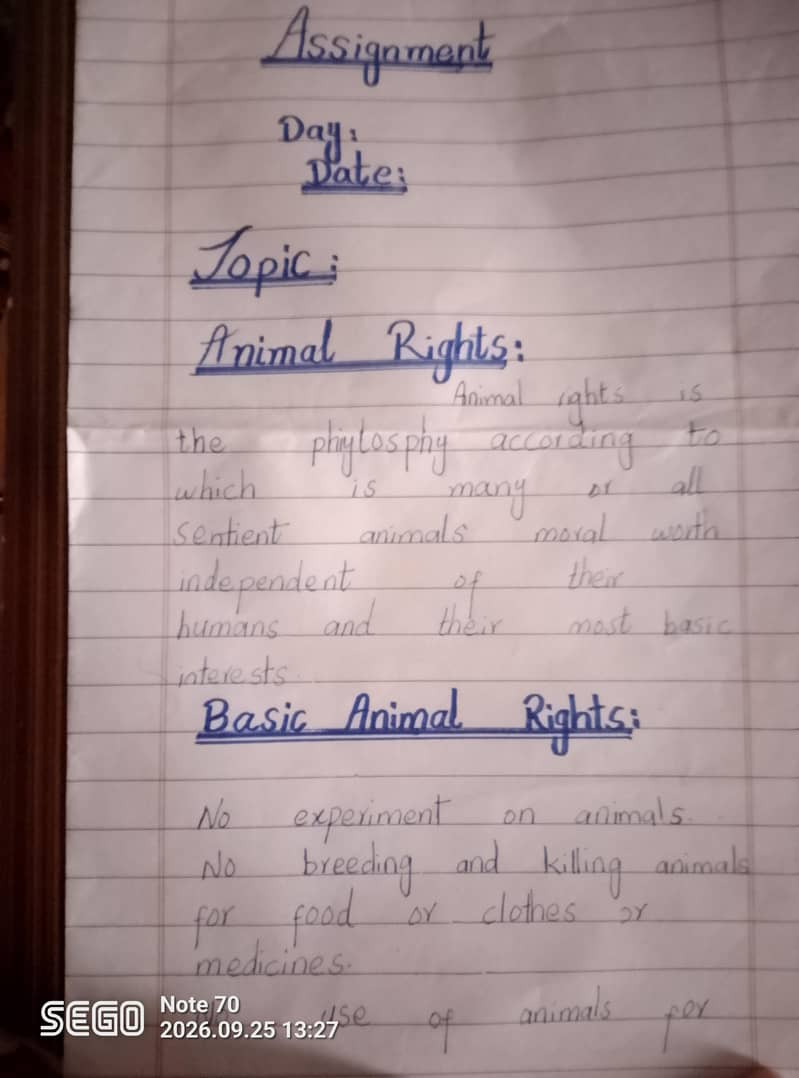 Assignment
Day:
Date:
Topic:
Animal Rights:
Animal rights is
the phiylosphy according to
which is many or all
sentient animals moral worth
independent of their
humans and their most basic
interests.
Basic Animal Rights:
No experiment on animals.
No breeding and killing animals
for food or clothes or
medicines.
use of animals for
SEGO Note 70
2026.09.25 13:27